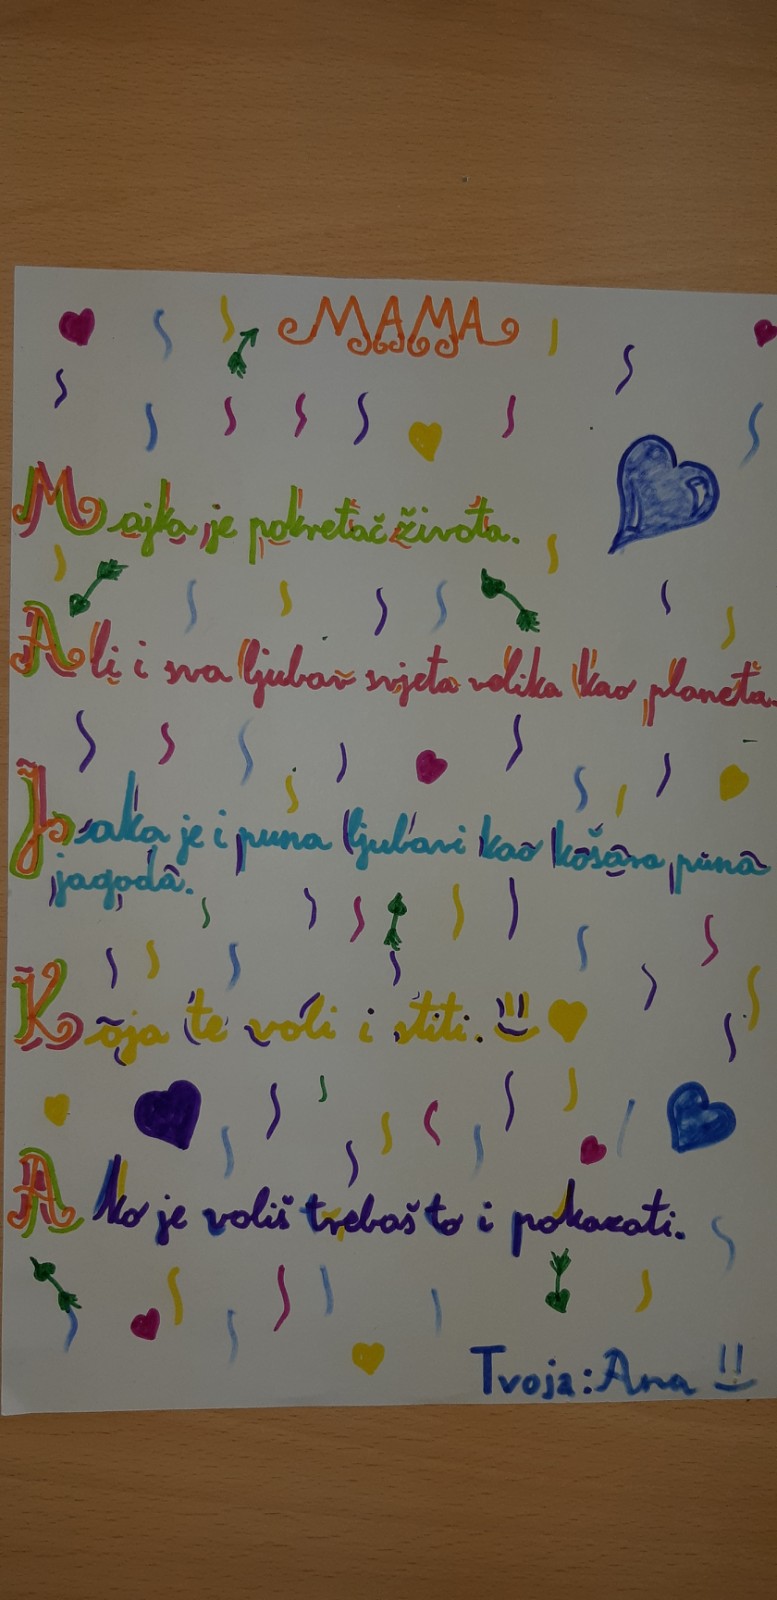 MAMA
Majka je pokretač života.
Ali i sva ljubav svjeta velika kao planeta.
Jaka je i puna ljubavi kao košara puna
jagoda.
Koja te voli i štiti.
Ako je voliš trebaš to i pokazati.
Tvoja: Ana